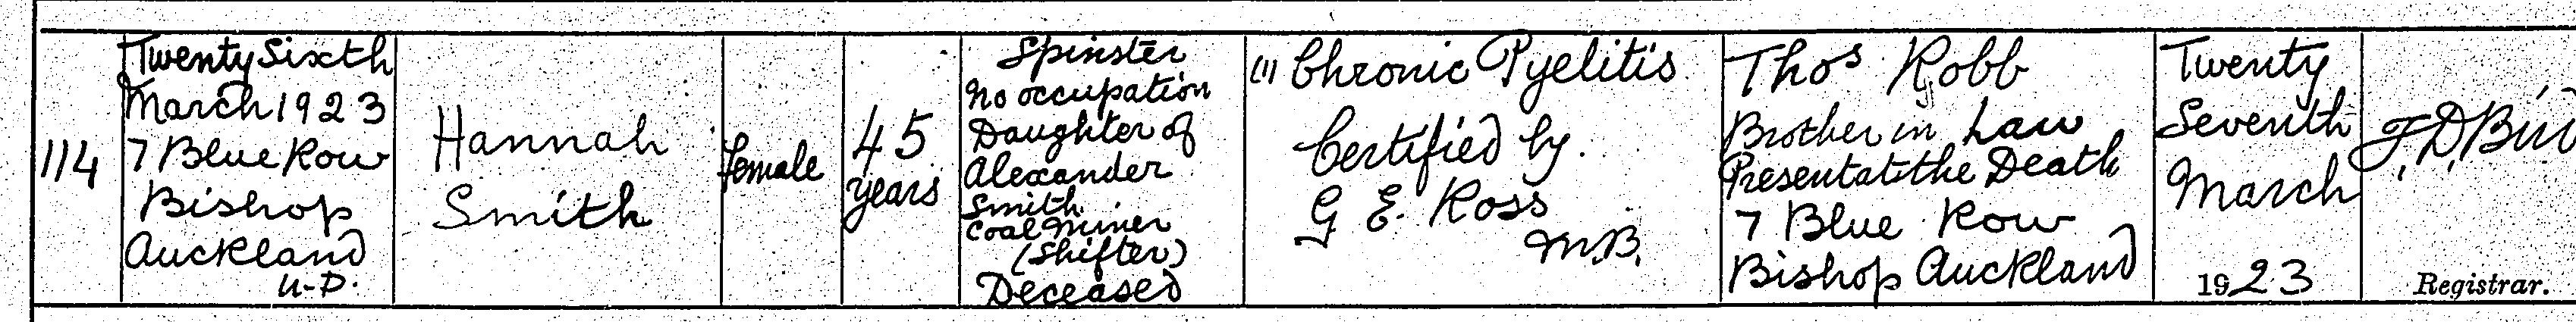 114
Twenty Sixth
March 1923
7 Blue Row
Bishop
Auckland
U.D.
Hannah
Smith
Female
45
years
Spinster
No occupation
Daughter of
Alexander
Smith
Coal Miner
(Shifter)
Deceased
(1) Chronic Pyelitis
Certified by
G E. Ross
M.B.
Thos Robb
Brother in Law
Present at the Death
7 Blue Row
Bishop Auckland
Twenty
Seventh
March
1923
Registrar.